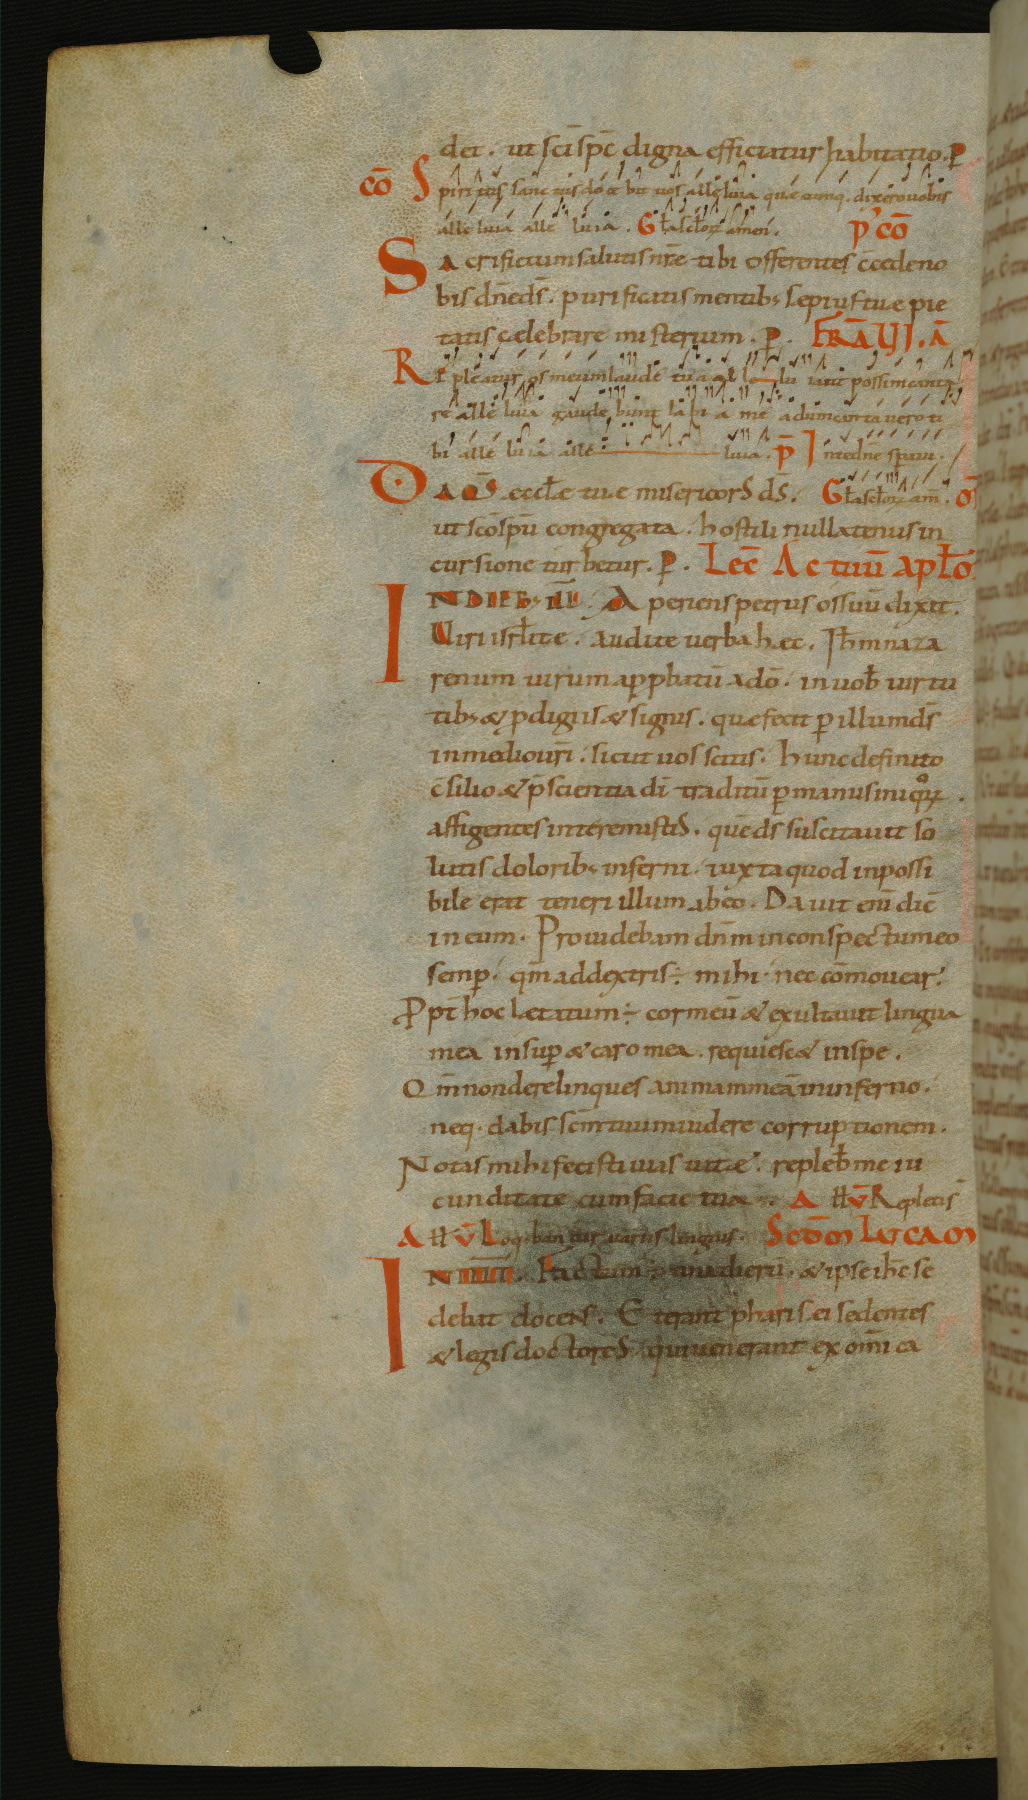 det. ut sc̄i sp̄c digna efficiatur habitatio. P̄
cō Spiritus sanctus docebit uos alleluia quecumq. dixero uobis
alleluia alleluia. Gła sclorꝝ amen. p̓ cō
Sacrificium salutis nr̄e tibi offerentes c̄cede no
bis dn̄e ds̄. purificatis mentib; sepius tue pie
tatis celebrare misterium. P̄. FR̄A VI. Ā
Repleatur os meum laude tua alleluia ut possim canta
re alleluia gaudebunt labia mea dum cantauero ti
bi alleluia alleluia. p̄ In te dn̄e speraui.
Da q̄s ecclę tuę misericors ds̄. Gła sclorꝝ am̄. ō
ut sc̄o sp̄u congregata. hostili nullatenus in
cursione turbetur. P̄. Lec̄ Actuū aplo
IN DIEB; ILL. Aperiens petrus os suū dixit.
Uiri isrłite. audite uerba hęc. Ih̄m naza
renum uirum approbatū a dō. in uob̄ uirtu
tib; & prodigiis & signis. que fecit ꝑ illum ds̄
in medio ur̄i. sicut uos scitis. hunc definito
c̄silio & p̄scientia dī traditū ꝑ manus iniquorꝝ.
affigentes interemistis. quē ds̄ suscitauit so
lutis dolorib; inferni. iuxta quod inpossi
bile erat teneri illum ab eo. Dauit eni dic̄
in eum. Prouidebam dn̄m in conspectu meo
semꝑ. qm̄ a dextris ÷ mihi. nec cōmouear.
Ꝓpt hoc lętatum ÷ cor meū & exultauit lingua
mea insuꝑ & caro mea. requiesc& in spe.
Qm̄ non derelinques animam meā in inferno.
neq. dabis scm̄ tuum uidere corruptionem.
Notas mihi fecisti uias uitę. repleb̄ me iu
cunditate cum facie tua. A ll v̄ Repleti s̄
A ll v̄ Loq.bantur uariis linguis. Scdm Lucam
IN ILL. Factum ÷ in una dierū. & ipse ih̄c se
debat docens. Et erant pharisei sedentes
& legis doctores qui uenerant ex om̄i ca